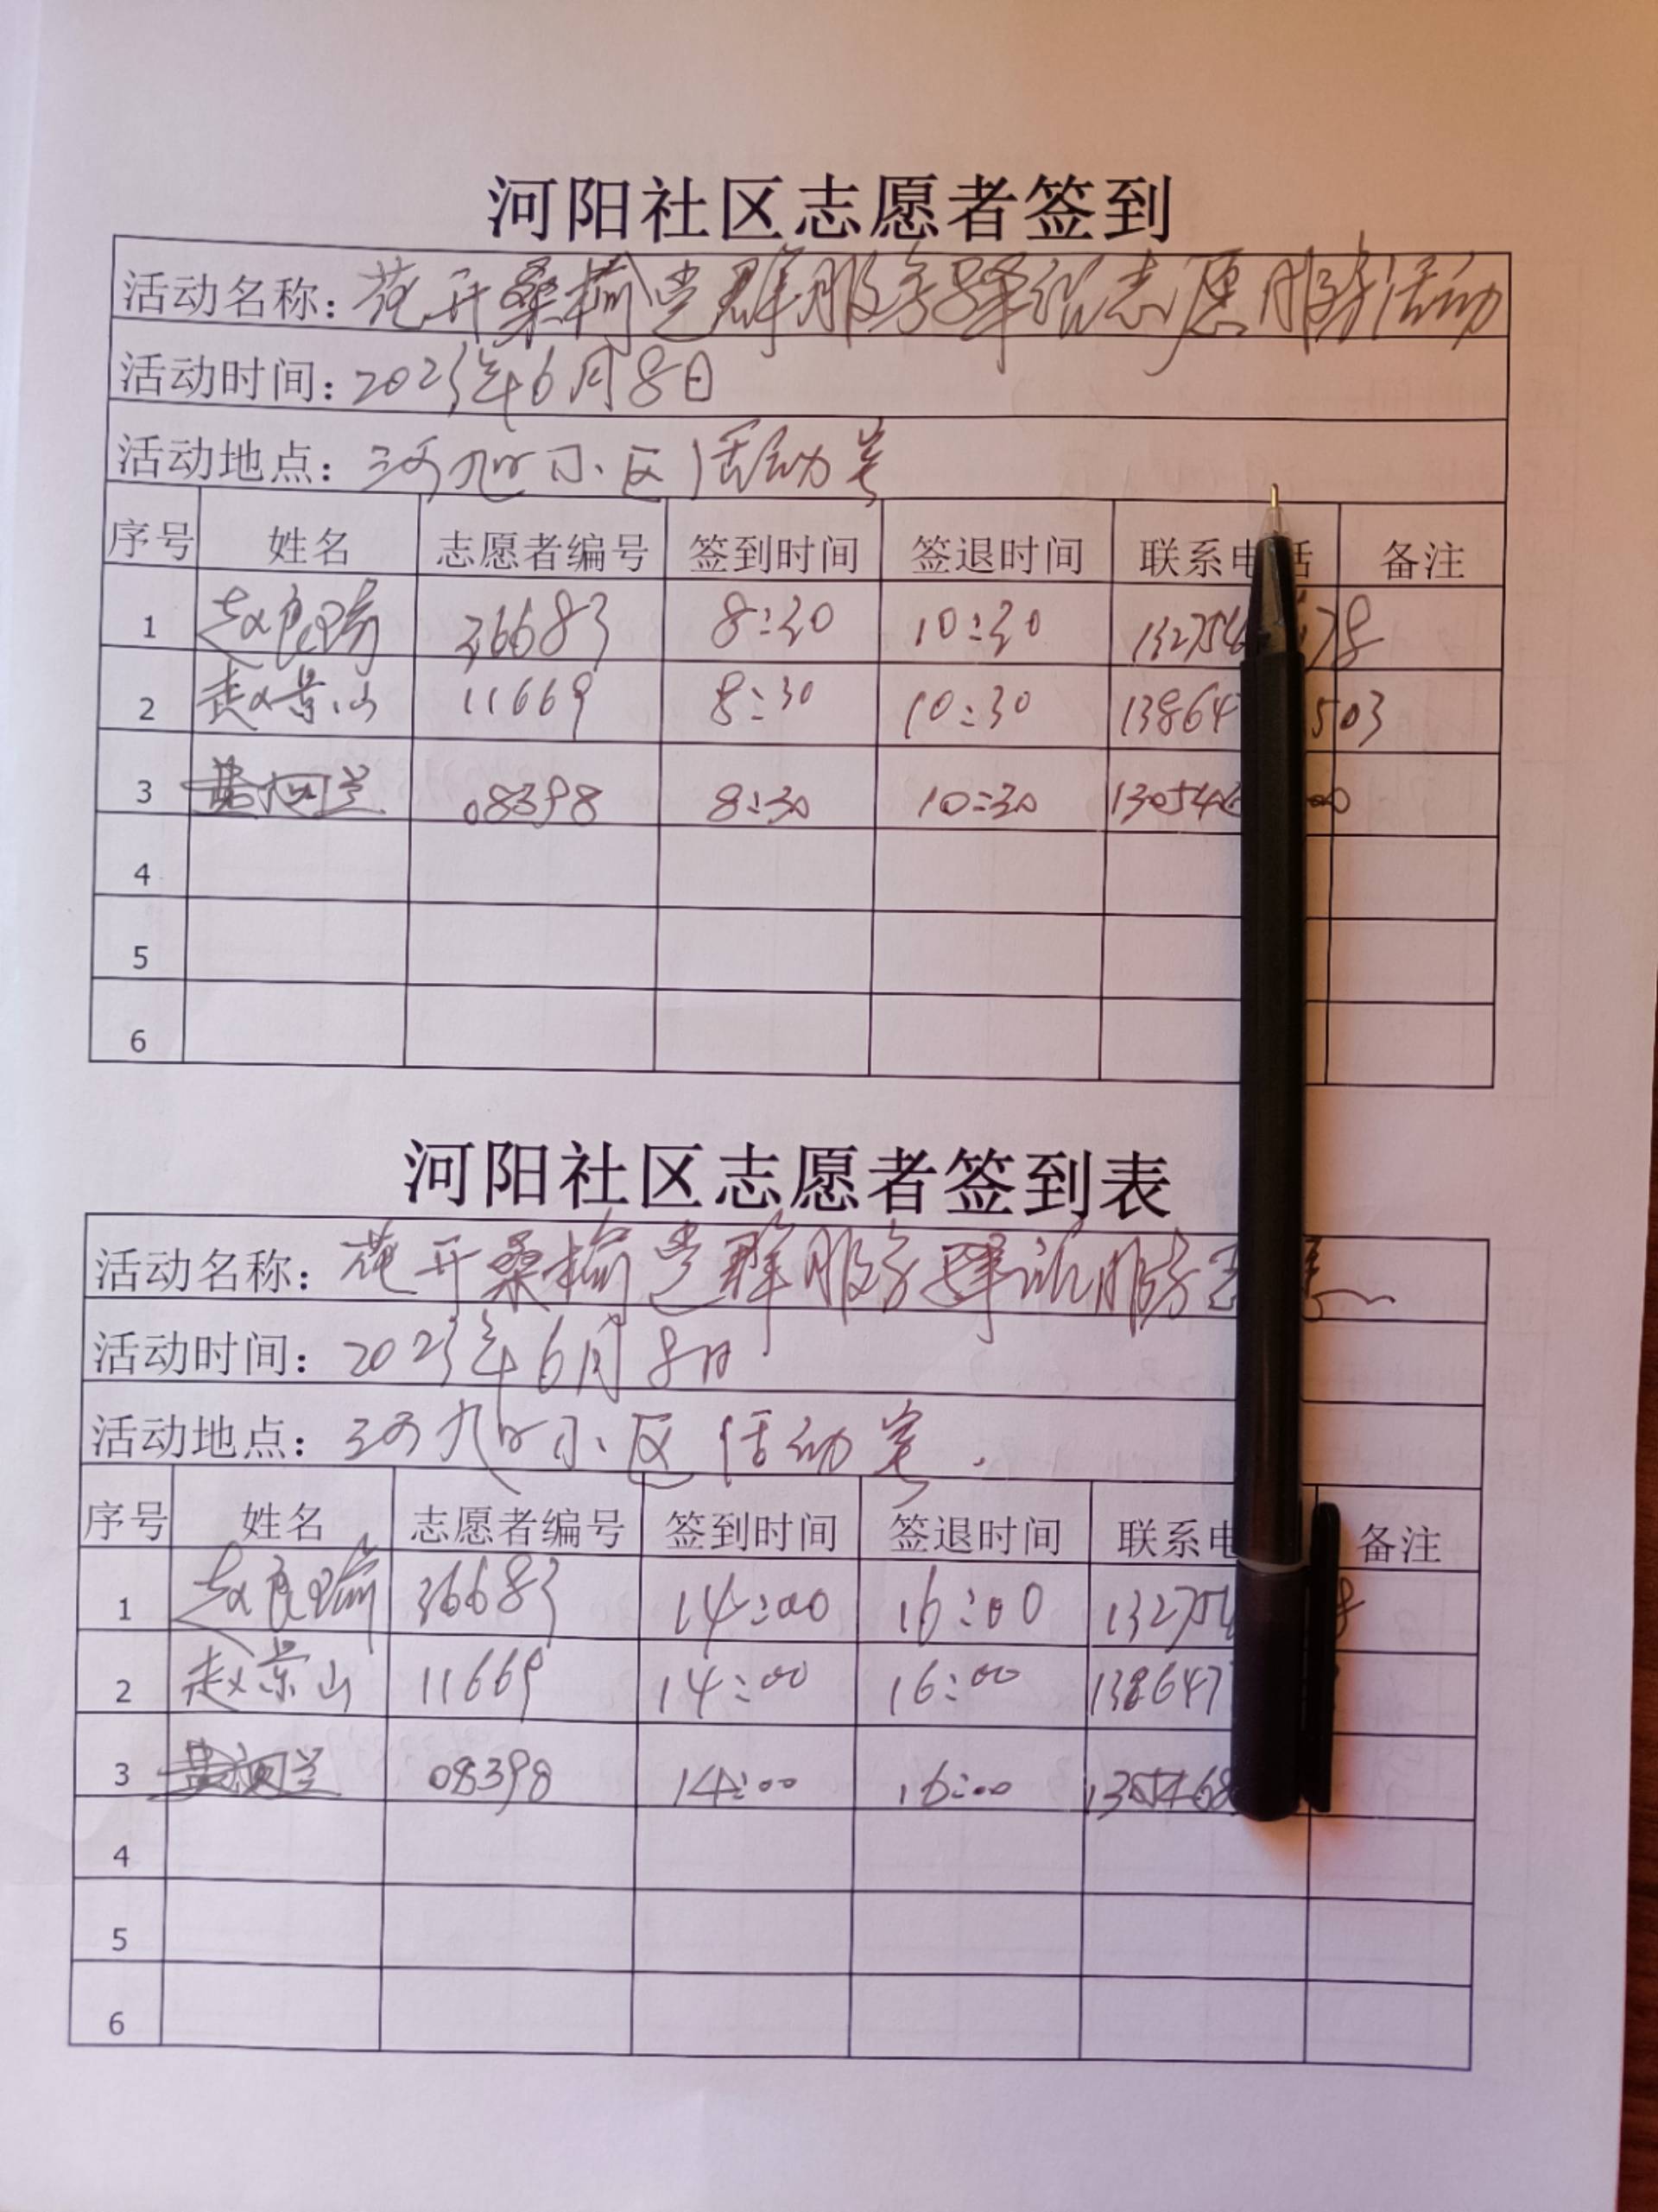 河阳社区志愿者签到
活动名称：花开桑榆党群服务驿站志愿服务活动
活动时间：2023年6月8日
活动地点：河九旺小区活动室
序号 姓名 志愿者编号 签到时间 签退时间 联系电话 备注
1 赵良瑞 36683 8:30 10:30 132754 78
2 赵景山 11669 8:30 10:30 13864 503
3 08398 8:30 10:30 130546 00
4
5
6
河阳社区志愿者签到表
活动名称：花开桑榆党群服务驿站服务
活动时间：2023年6月8日
活动地点：河九旺小区活动室.
序号 姓名 志愿者编号 签到时间 签退时间 联系电 备注
1 赵良瑞 36683 14:00 16:00 13275 8
2 赵景山 11669 14:00 16:00 138647
3 08398 14:00 16:00
4
5
6